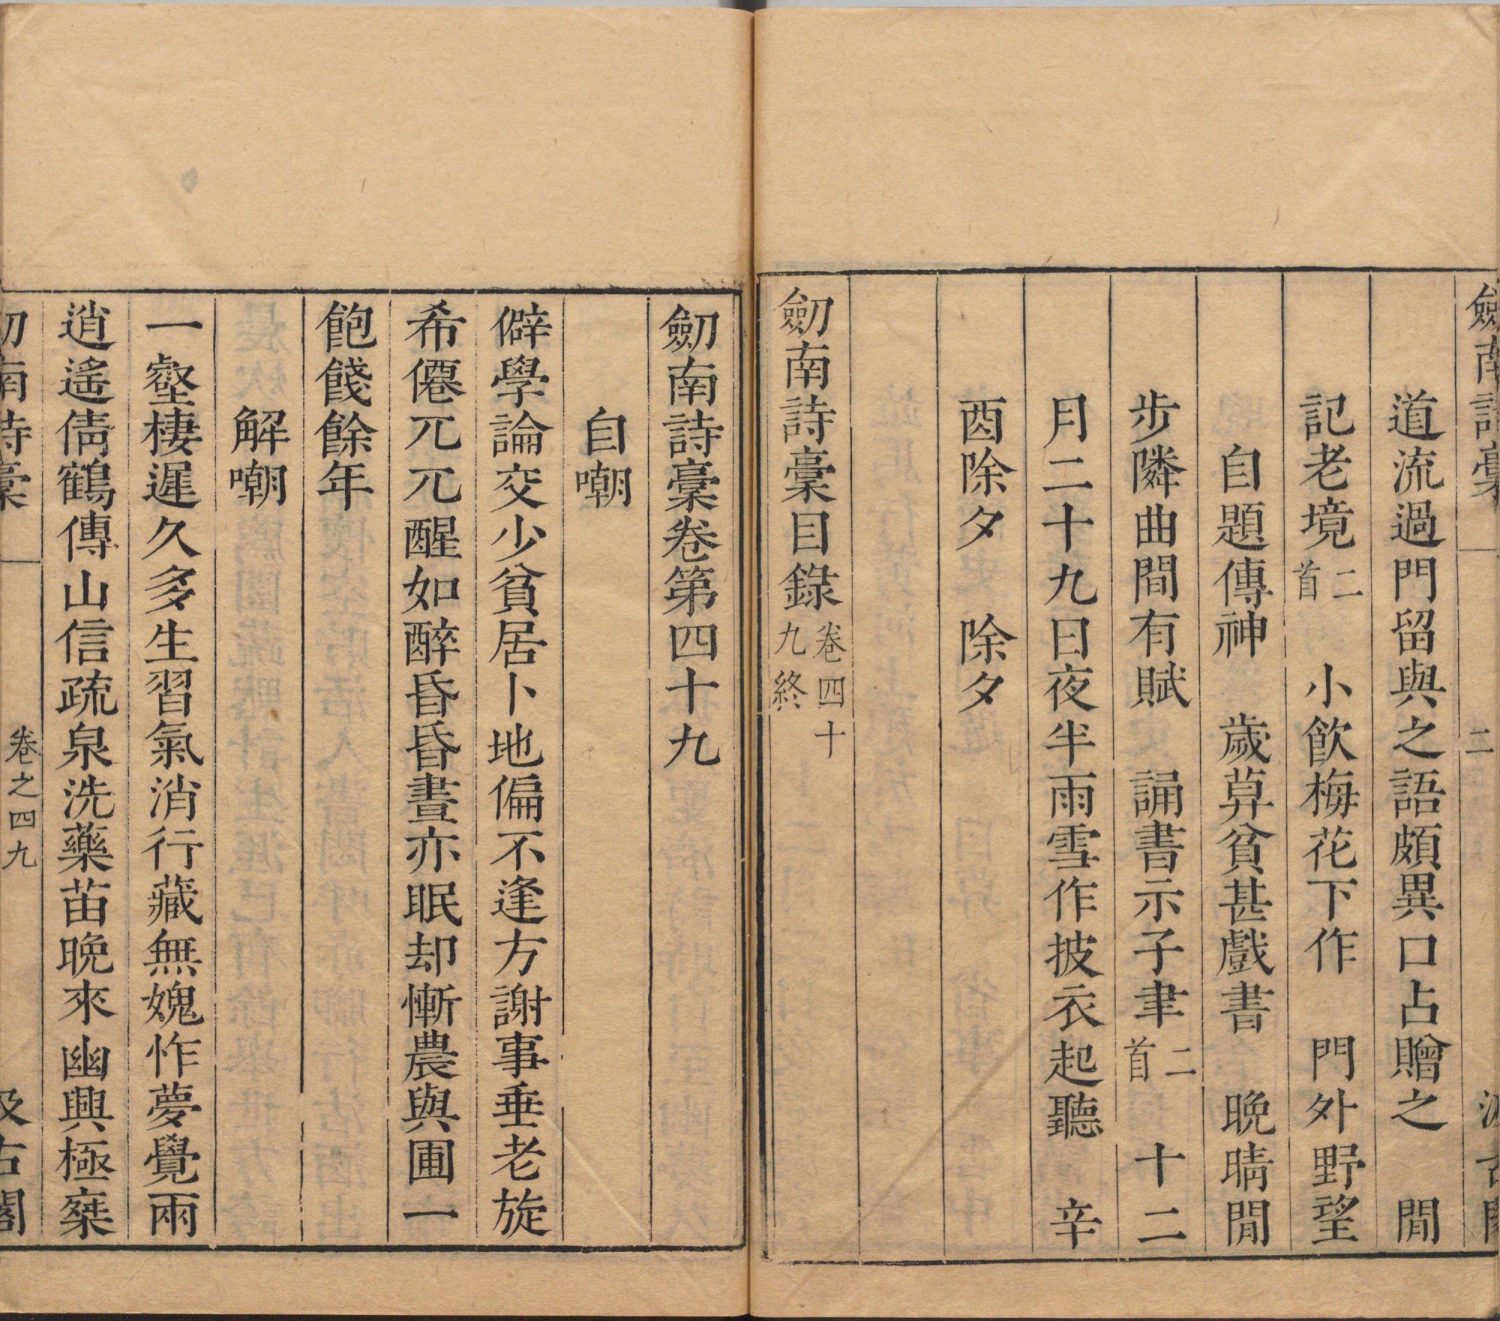 劒南詩稾 二 汲古閣
道流過門留與之語頗異口占贈之 閒
記老境二首 小飲梅花下作 門外野望
自題傳神 歲莫貧甚戲書 晚晴閒
步隣曲間有賦 誦書示子聿二首 十二
月二十九日夜半雨雪作披衣起聽 辛
酉除夕 除夕
劒南詩稾目錄卷四十九終
劒南詩稾卷第四十九
自嘲
僻學論交少貧居卜地偏不逢方謝事垂老旋
希僊兀兀醒如醉昏昏晝亦眠却慚農與圃一
飽餞餘年
解嘲
一壑棲遲久多生習氣消行藏無媿怍夢覺兩
逍遙倩鶴傳山信疏泉洗藥苗晚來幽興極棄
劒南詩稾 卷之四九 汲古閣